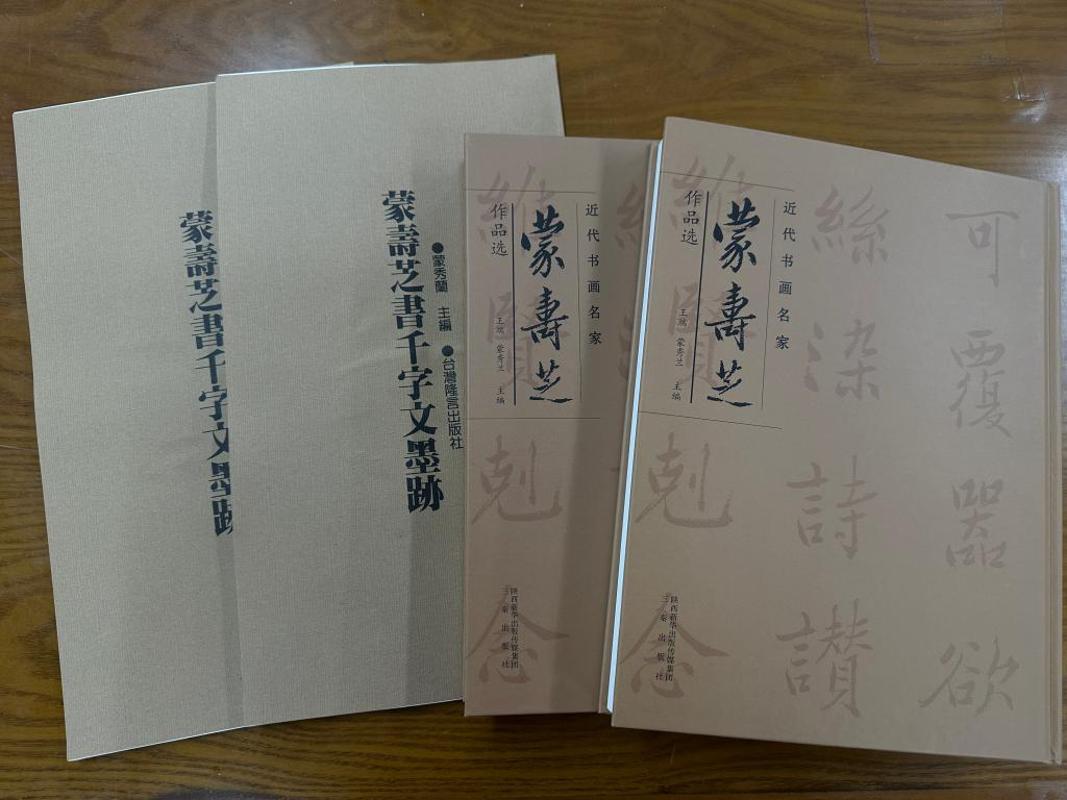 蒙壽芝書千字文墨跡
蒙壽芝書千字文墨跡
●蒙秀蘭 主編 ●台灣隆言出版社
近代书画名家
蒙壽芝
作品选
蒙秀兰 主编
陕西新华出版传媒集团
三秦出版社
維
賢
剋
念
近代书画名家
蒙壽芝
作品选
蒙秀兰 主编
陕西新华出版传媒集团
三秦出版社
可覆器欲
絲染詩讃
維賢剋念